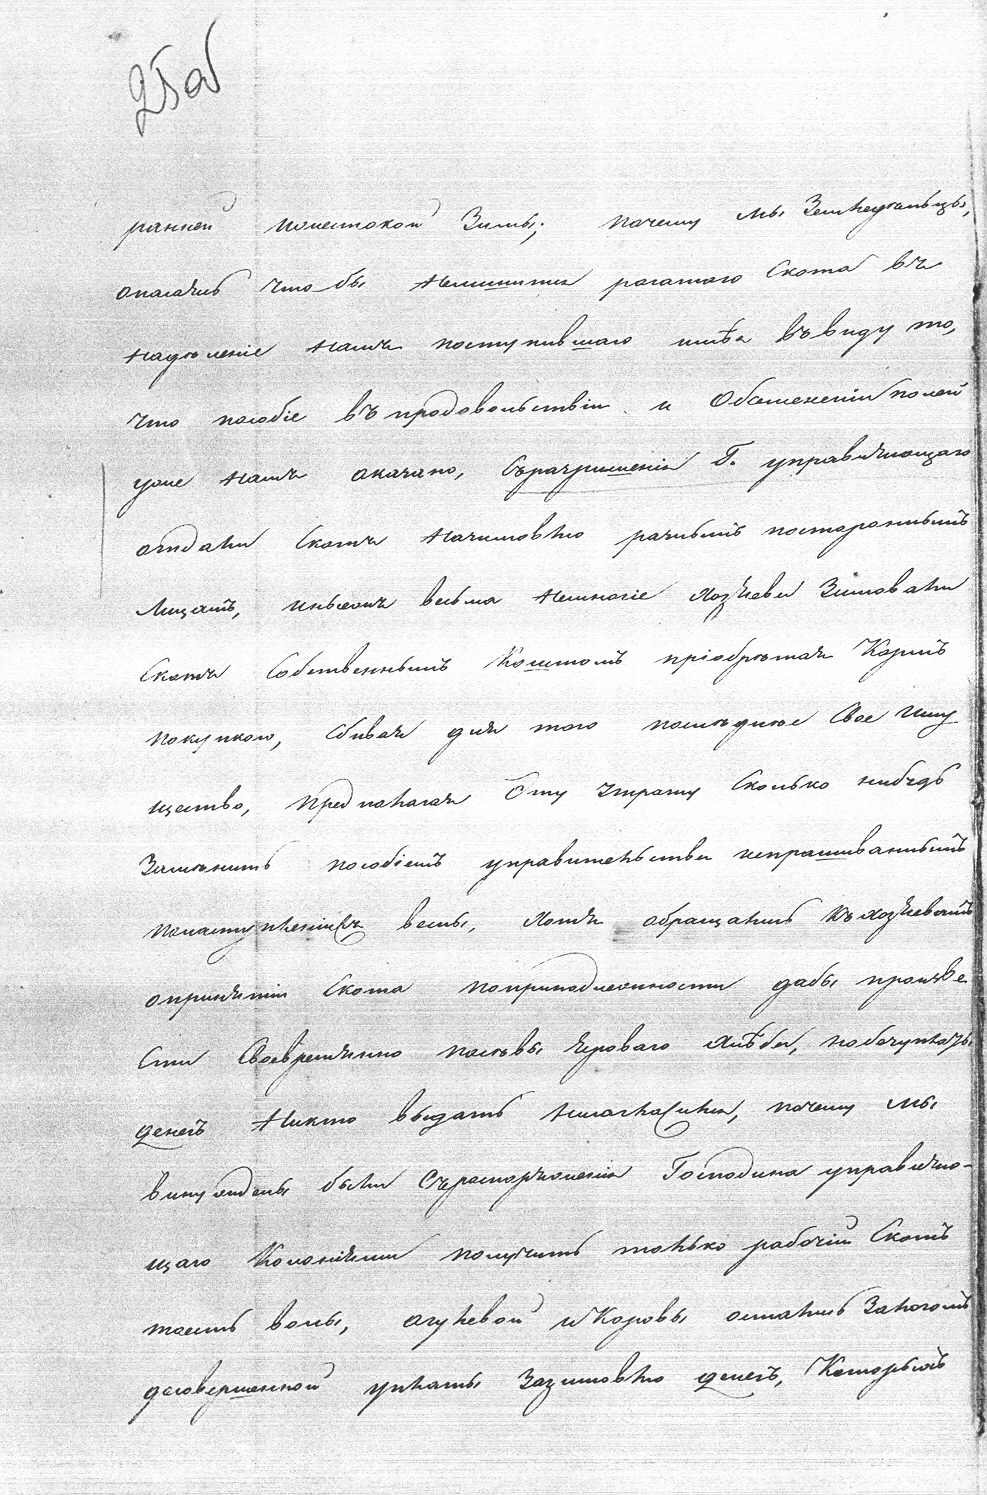 25 об
ранней и жестокой Зимы; почему мы Земледельцы,
опасаясь что бы нелишиться рогатого Скота въ
надѣленіе намъ поступившаго имѣя въ виду то,
что пособіе въ продовольствіи и Обсемененіи полей
уже намъ оказано, Съразрѣшенія Г. управляющаго
отдали Скотъ Назимовлю разнымъ постороннымъ
Лицамъ, иные весьма немногіе хозяева Зимовали
Скотъ Собственнымъ Коштомъ пріобрѣтая Кормъ
покупкою, Сбывая для того послѣднѣе Свое Иму
щество, предполагая Эту утрату Сколько нибудь
Замѣнить пособіемъ управительства испрашиваннымъ
понаступленіи Съ весны, Хотя обращались къ хозяевамъ
опринятіи Скота попринадлежности дабы произве
Сти Своевременно посѣвы яроваго хлѣба, но безуплаты
денегъ Никто выдать несоглаСился, почему мы
вынуждены были Съраспоряженія Господина управляю-
щаго Колоніями получить только рабочій Скотъ
тоесть волы, агулевой и Коровы остались Залогомъ
досовершенной уплаты Зазимовлю денегъ, Которыхъ